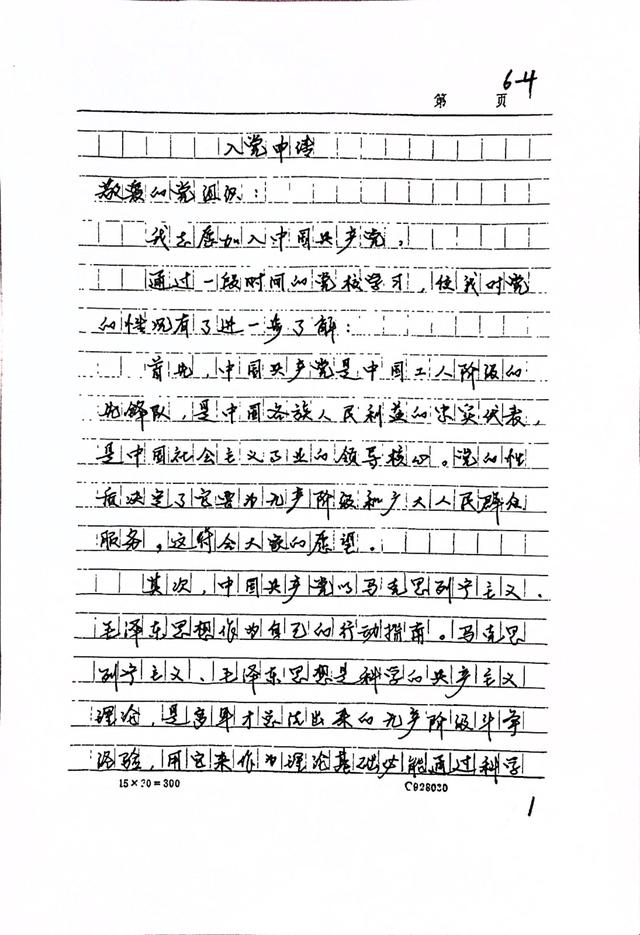 6-4
第 页
入党申请
敬爱的党组织:
我志愿加入中国共产党,
通过一段时间的党校学习,使我对党
的情况有了进一步了解:
首先,中国共产党是中国工人阶级的
先锋队,是中国各族人民利益的忠实代表,
是中国社会主义事业的领导核心。党的性
质决定了它要为无产阶级和广大人民群众
服务,这符合大家的愿望。
其次,中国共产党以马克思列宁主义、
毛泽东思想作为自己的行动指南。马克思
列宁主义、毛泽东思想是科学的共产主义
理论,是多年才总结出来的无产阶级斗争
经验,用它来作为理论基础必能通过科学
15×20=300 C928030
1